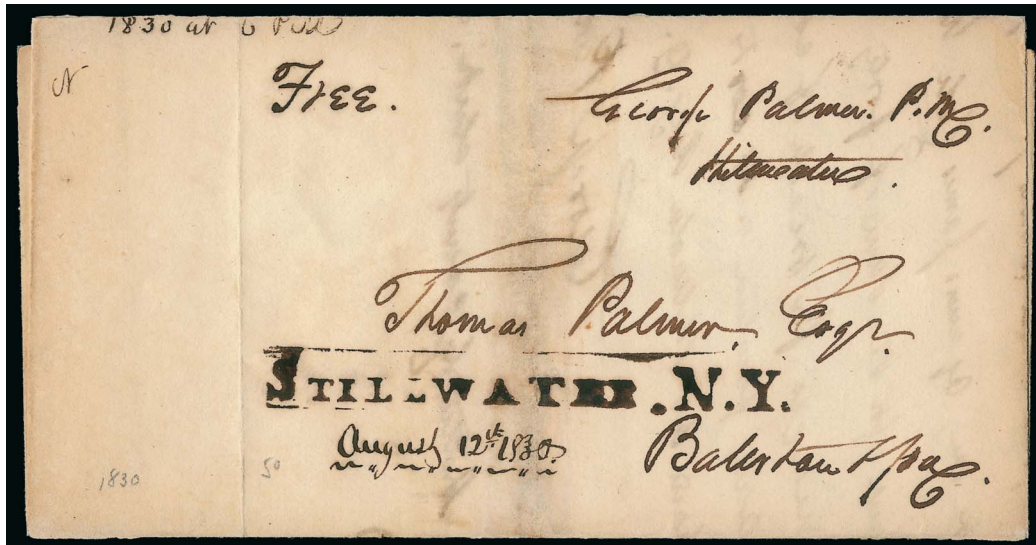 1830 at 6 P
N
Free.
George Palmer. P.M.
Stillwater.
Thomas Palmer, Esqr.
STILLWATER.N.Y.
August 12th 1830.
Balerton Spa.
1830
50